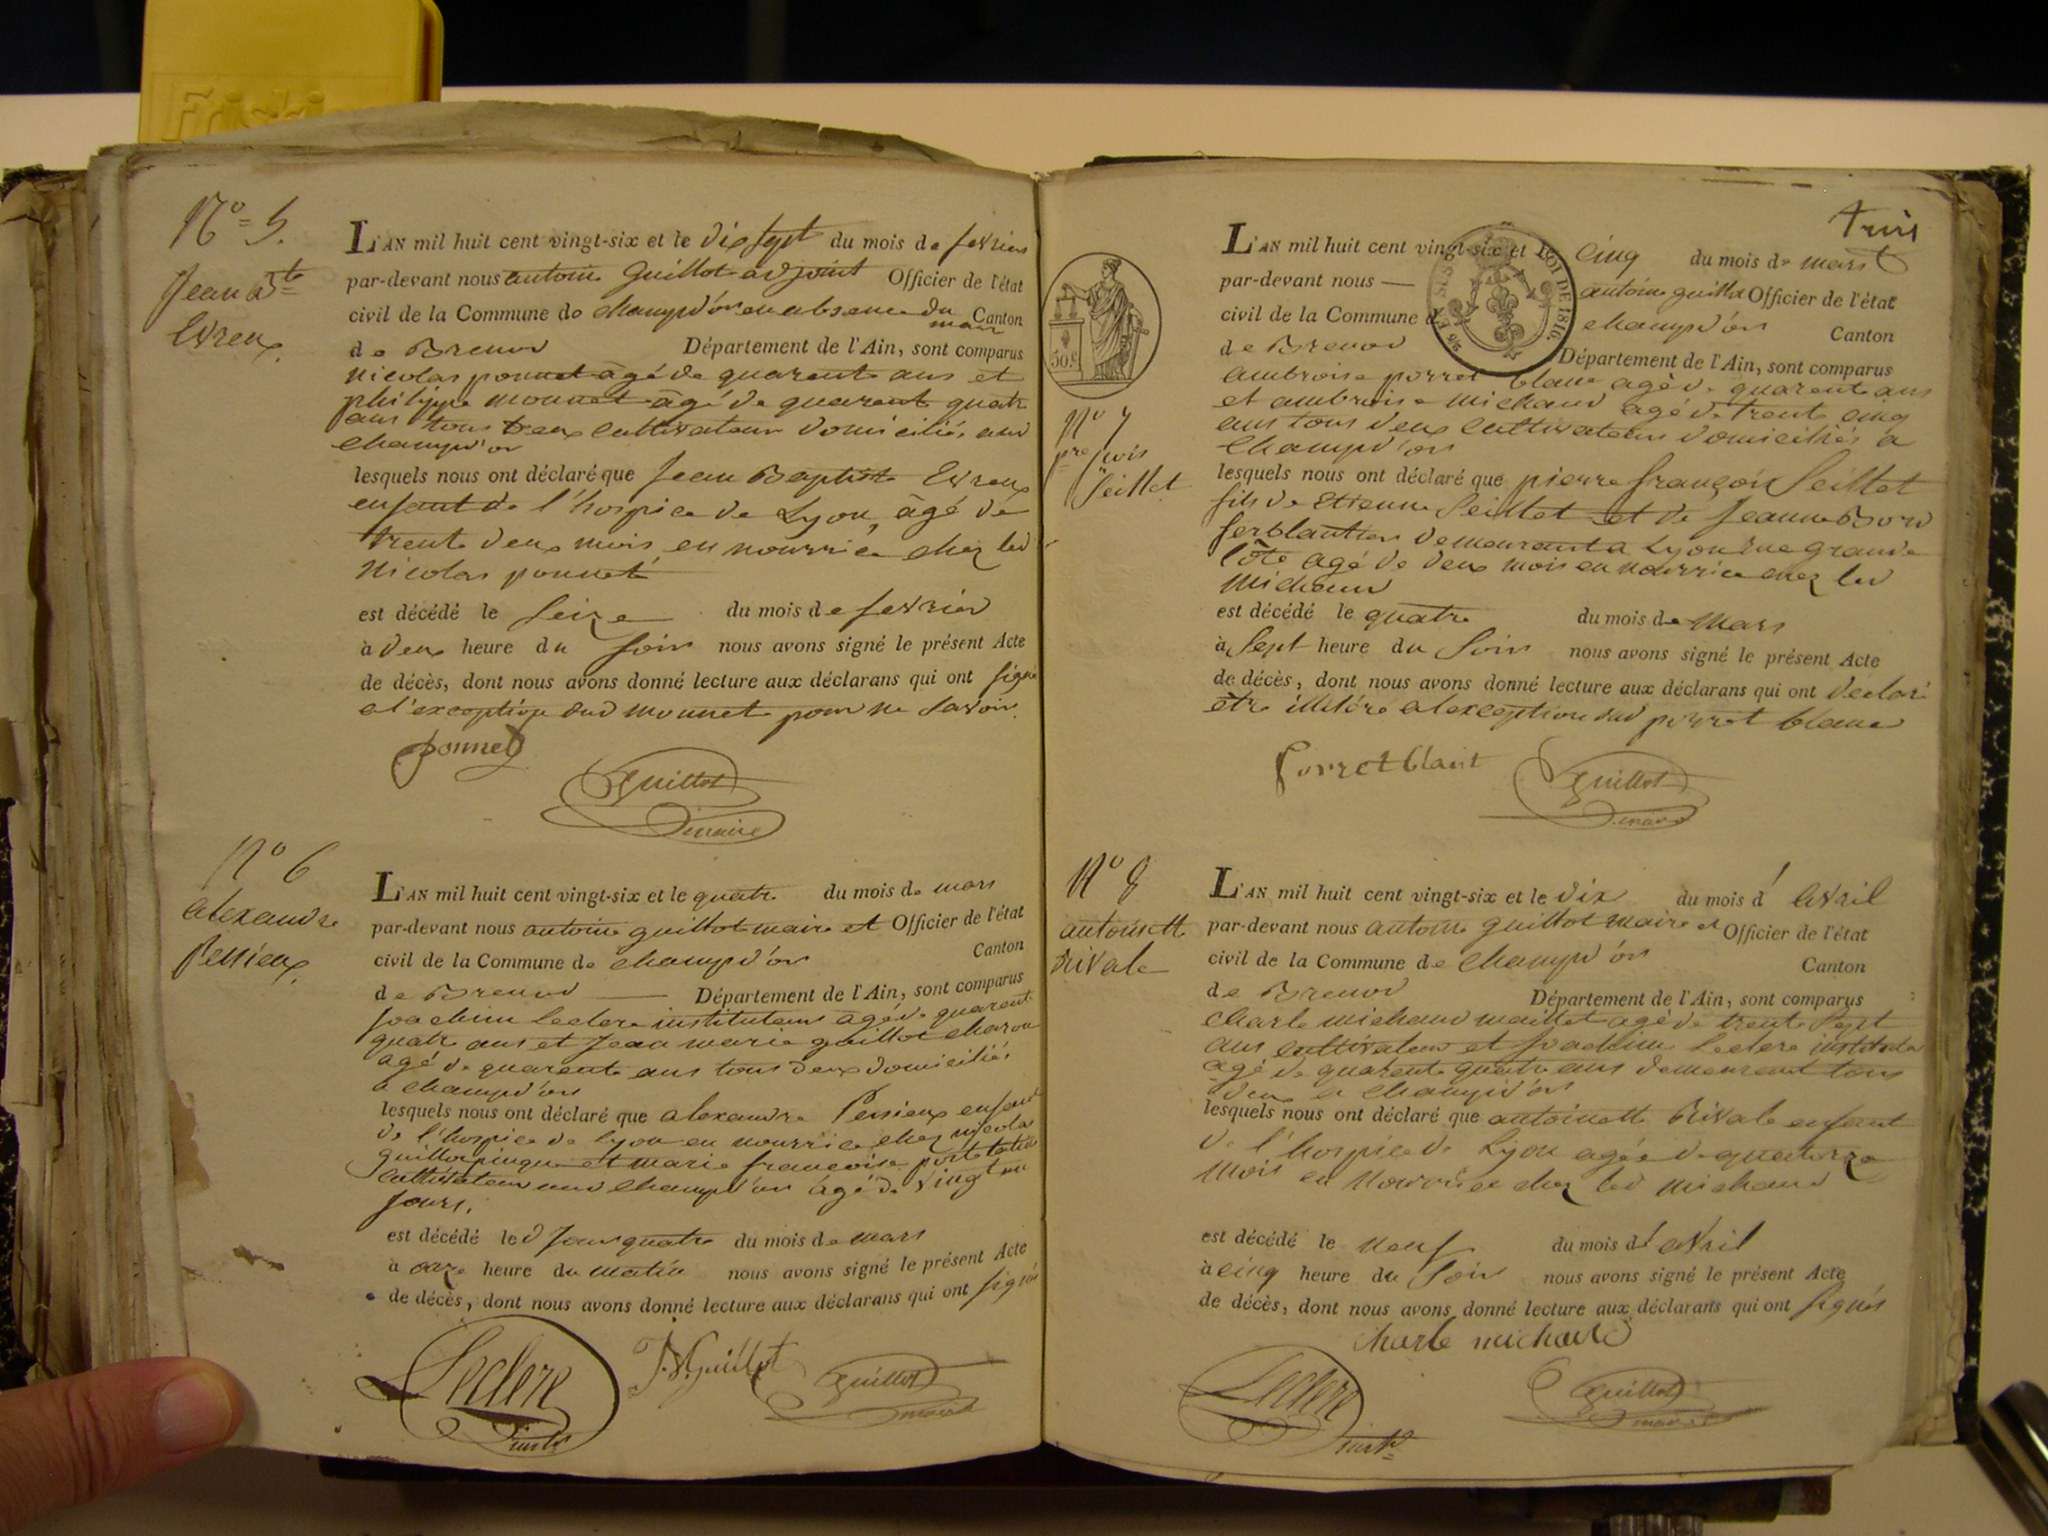 Friski
N° 5.
Jean Bte
Evreux.
L'AN mil huit cent vingt-six et le dix sept du mois de fevrier
par-devant nous antoine Guillot adjoint Officier de l'état
civil de la Commune de champd'or en absence du maire Canton
de Brenod Département de l'Ain, sont comparus
Nicolas ponnet âgé de quarente ans et
philippe monnet âgé de quarente quatre
ans tous deux cultivateurs domiciliés aud
champd'or
lesquels nous ont déclaré que Jean Baptiste Evreux
enfant de l'hospice de Lyon, âgé de
trente deux mois en nourrice chez led
Nicolas ponnet
est décédé le seize du mois de fevrier
à deux heure du soir nous avons signé le présent Acte
de décès, dont nous avons donné lecture aux déclarans qui ont signé
a l'exception dud monnet pour ne savoir.
ponnet
Guillot
maire
N° 6
alexandre
Persieux.
L'AN mil huit cent vingt-six et le quatre du mois de mars
par-devant nous antoine guillot maire et Officier de l'état
civil de la Commune de champd'or Canton
de Brenod Département de l'Ain, sont comparus
Joachim Leclerc instituteur âgé de quarente
quatre ans et Jean marie guillot
agé de quarente ans tous deux domiciliés
a champd'or
lesquels nous ont déclaré que alexandre Persieux enfant
de l'hospice de Lyon en nourrice chez nicolas
guillot et marie françoise
cultivateur aud champd'or âgé de vingt un
jours.
est décédé le d jour quatre du mois de mars
à onze heure du matin nous avons signé le présent Acte
de décès, dont nous avons donné lecture aux déclarans qui ont signés
Leclerc
J.M Guillot
Guillot
maire
Trois
50 c
LOI DE 1816.
N° 7
pre fcois
Seillet
L'AN mil huit cent vingt-six et le cinq du mois de mars
par-devant nous antoine guillot Officier de l'état
civil de la Commune d champd'or Canton
de Brenod Département de l'Ain, sont comparus
ambroise porret blanc agé de quarente ans
et ambroise michaud agé de trente cinq
ans tous deux cultivateurs domiciliés a
champd'or
lesquels nous ont déclaré que pierre françois Seillet
fils de Etienne Seillet et de Jeanne Bord
ferblantier demeurant a Lyon rue grande
Côte agé de deux mois en nourrice chez led
Michaud
est décédé le quatre du mois de mars
à sept heure du soir nous avons signé le présent Acte
de décès, dont nous avons donné lecture aux déclarans qui ont declaré
être illitéré a lexception dud porret blanc
Porret blant
Guillot
maire
N° 8
antoinette
Rivale
L'AN mil huit cent vingt-six et le dix du mois d' avril
par-devant nous antoine guillot maire et Officier de l'état
civil de la Commune de champd'or Canton
de Brenod Département de l'Ain, sont comparus
Charle michaud maillet agé de trente sept
ans cultivateur et Joachim Leclerc instituteur
agé de quarente quatre ans demeurent tous
deux a champd'or
lesquels nous ont déclaré que antoinette Rivale enfant
de l'hospice de Lyon agée de quatorze
mois en nourrice chez led michaud
est décédé le neuf du mois d' avril
à cinq heure du soir nous avons signé le présent Acte
de décès, dont nous avons donné lecture aux déclarans qui ont signés
charle michaud
Leclerc
Guillot
maire